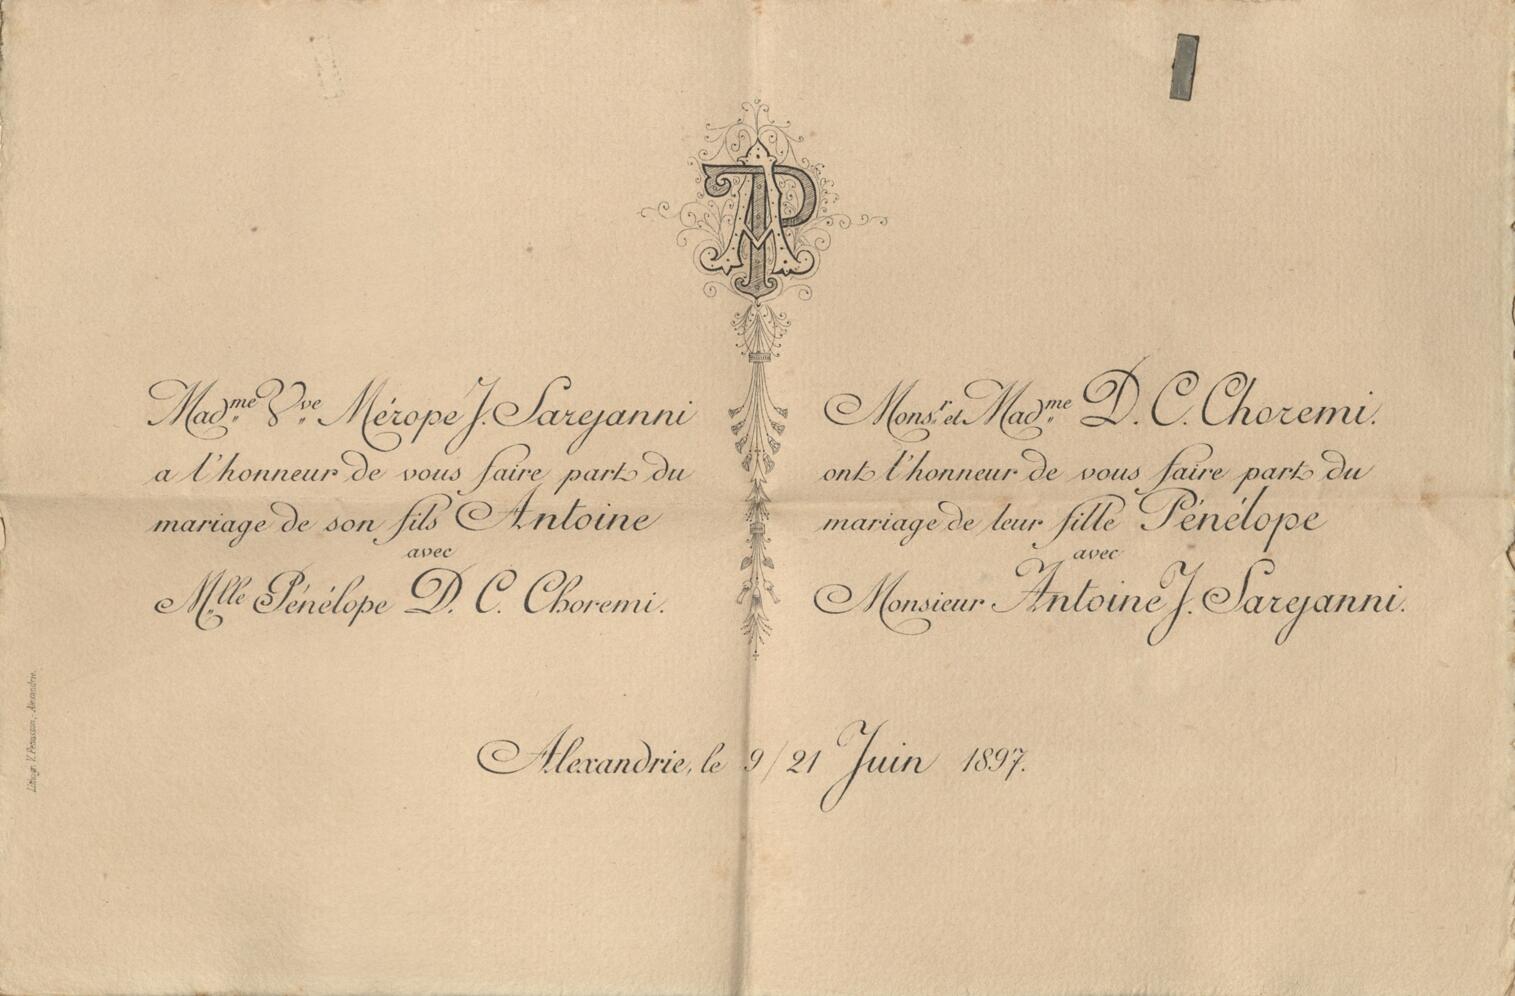 AP
Mad.me Vve Mérope J. Sarejanni
a l'honneur de vous faire part du
mariage de son fils Antoine
avec
Mlle Pénélope D. C. Choremi.
Mons.r et Mad.me D. C. Choremi.
ont l'honneur de vous faire part du
mariage de leur fille Pénélope
avec
Monsieur Antoine J. Sarejanni.
Alexandrie, le 9/21 Juin 1897.
Lithogr. V. Penasson, Alexandrie.